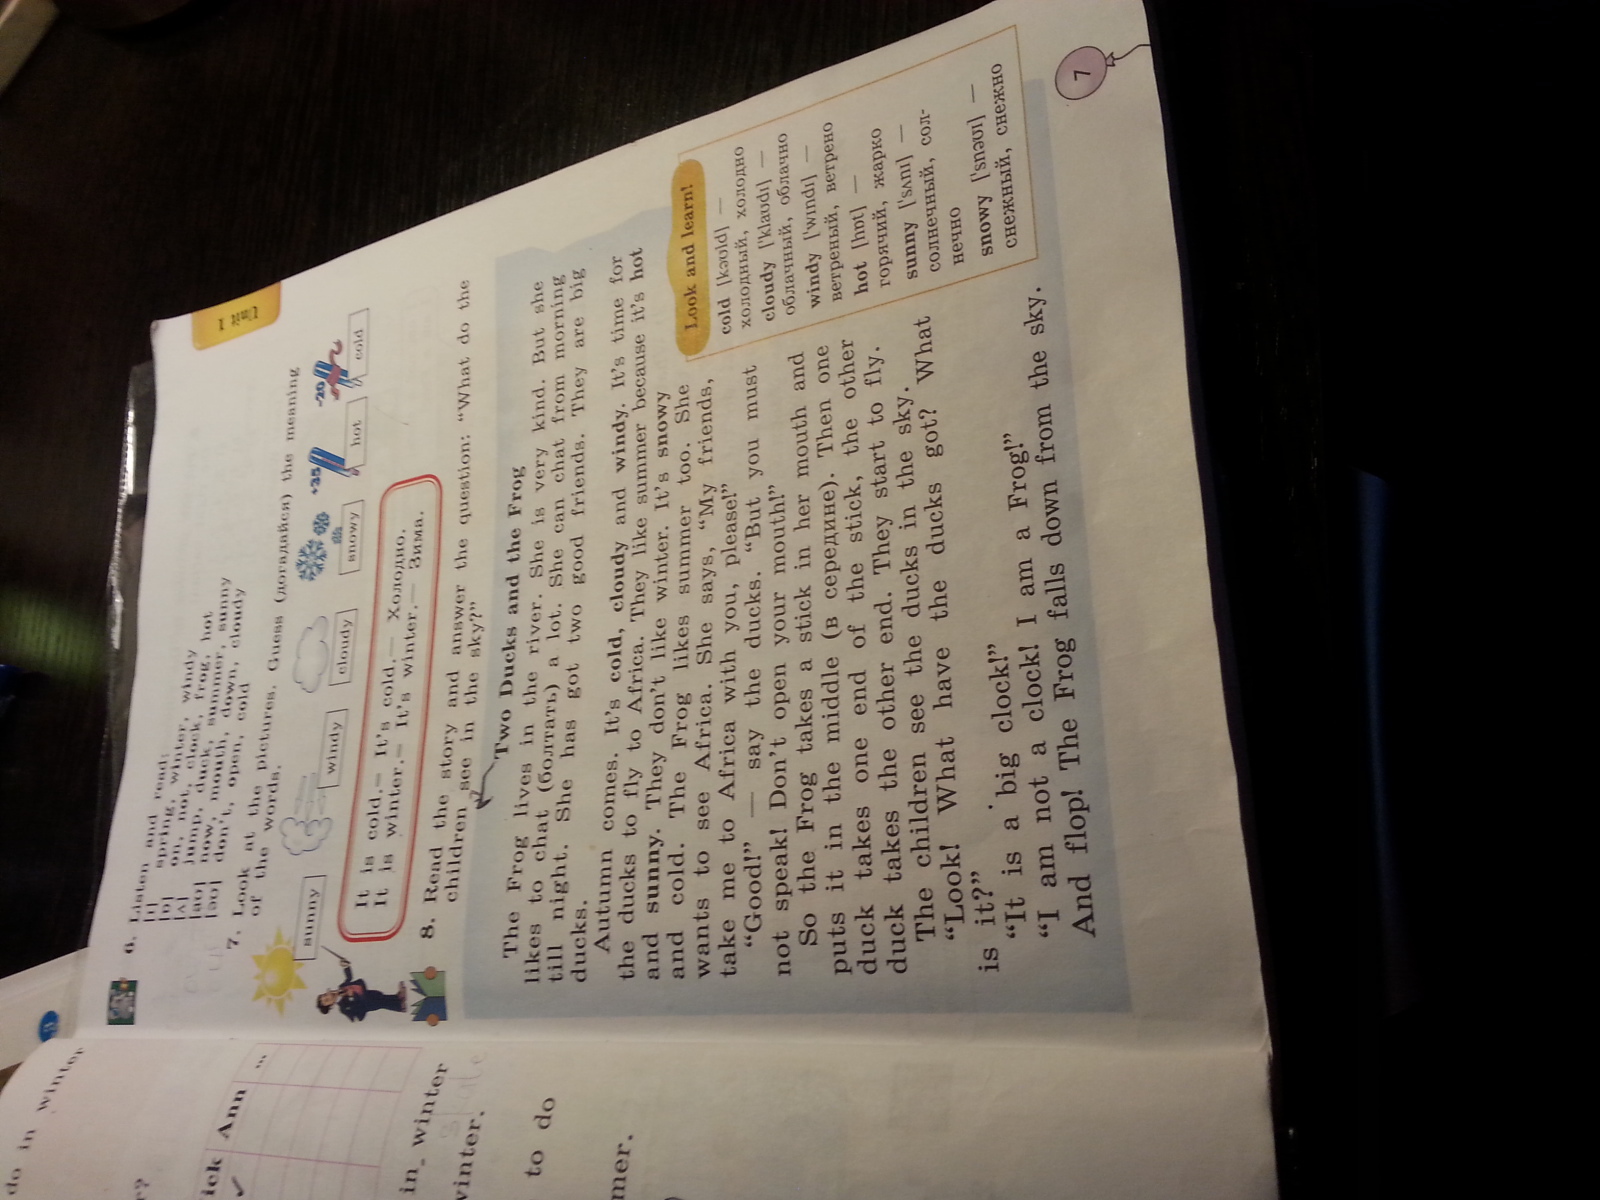 Unit 1
6. Listen and read:
[ɪ] spring, winter, windy
[ɒ] on, not, clock, frog, hot
[ʌ] jump, duck, summer, sunny
[aʊ] now, mouth, down, cloudy
[əʊ] don't, open, cold
7. Look at the pictures. Guess (догадайся) the meaning
of the words.
+35 -20
sunny windy cloudy snowy hot cold
It is cold.= It's cold.— Холодно.
It is winter.= It's winter.— Зима.
8. Read the story and answer the question: “What do the
children see in the sky?”
Two Ducks and the Frog
The Frog lives in the river. She is very kind. But she
likes to chat (болтать) a lot. She can chat from morning
till night. She has got two good friends. They are big
ducks.
Autumn comes. It's cold, cloudy and windy. It's time for
the ducks to fly to Africa. They like summer because it's hot
and sunny. They don't like winter. It's snowy
and cold. The Frog likes summer too. She
wants to see Africa. She says, “My friends,
take me to Africa with you, please!”
“Good!” — say the ducks. “But you must
not speak! Don't open your mouth!”
So the Frog takes a stick in her mouth and
puts it in the middle (в середине). Then one
duck takes one end of the stick, the other
duck takes the other end. They start to fly.
The children see the ducks in the sky.
“Look! What have the ducks got? What
is it?”
“It is a big clock!”
“I am not a clock! I am a Frog!”
And flop! The Frog falls down from the sky.
Look and learn!
cold [kəʊld] —
холодный, холодно
cloudy ['klaʊdɪ] —
облачный, облачно
windy ['wɪndɪ] —
ветреный, ветрено
hot [hɒt] —
горячий, жарко
sunny ['sʌnɪ] —
солнечный, сол-
нечно
snowy ['snəʊɪ] —
снежный, снежно
7
do in winter
r?
ick Ann ...
in winter
winter.
to do
mer.